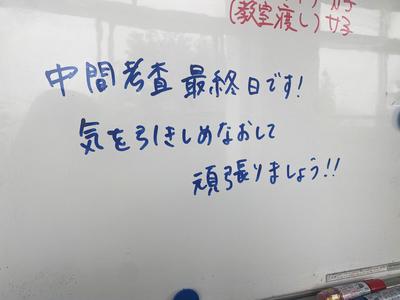 (教室渡し)女子
中間考査 最終日です!
気を引きしめなおして
頑張りましょう!!